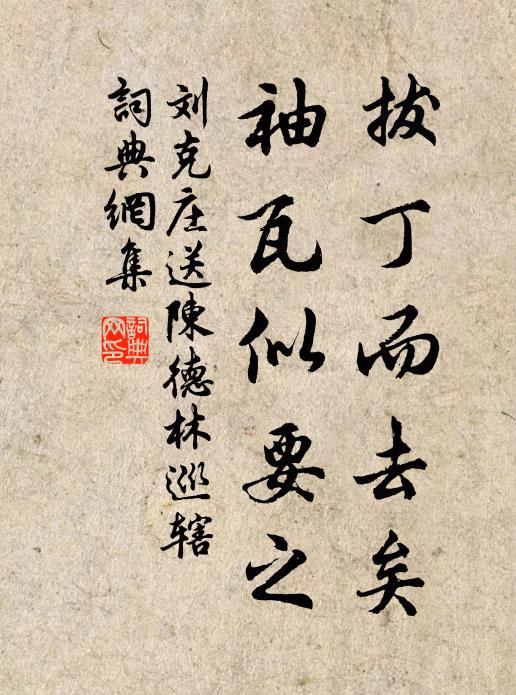 拔丁而去矣
袖瓦似要之
刘克庄送陳德林巡辖
詞典網集
詞典网印